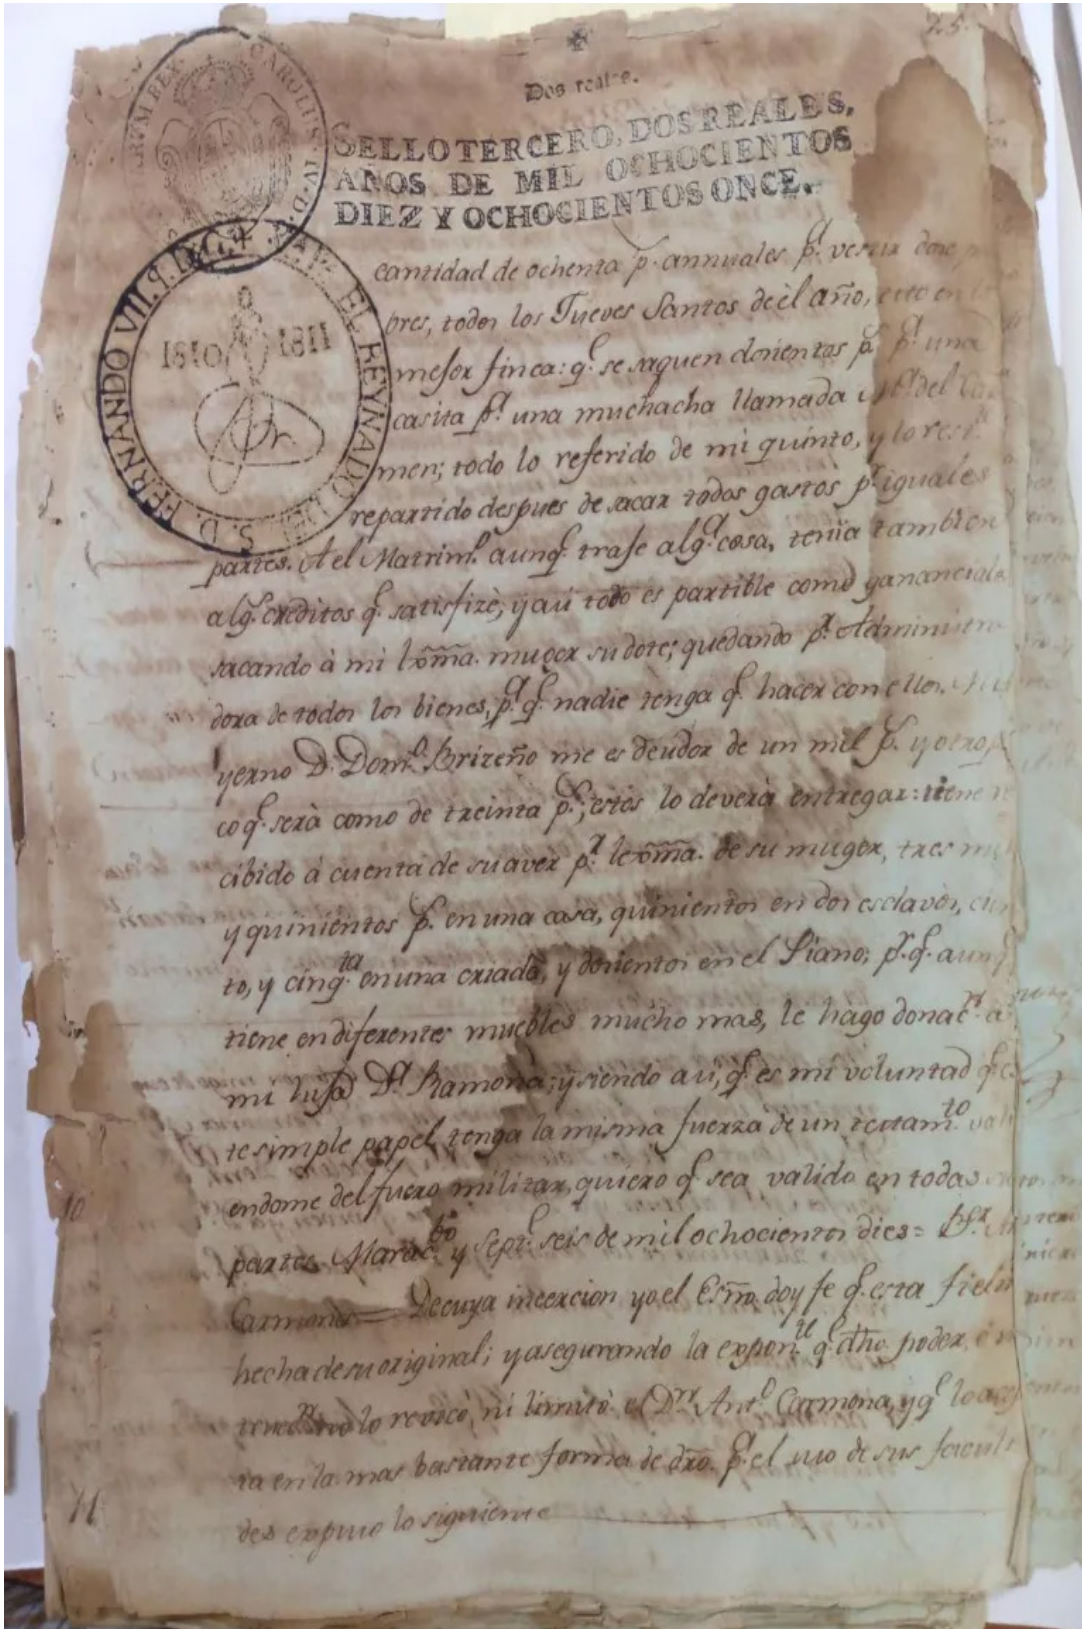 25.
Dos reales.
SELLO TERCERO, DOS REALES,
AÑOS DE MIL OCHOCIENTOS
DIEZ Y OCHOCIENTOS ONCE.
CAROLUS IV D
EL REYNADO DE S. D. FERNANDO VII
1810 1811
cantidad de ochenta p.s annuales p.a vestir doce
bres, todos los Jueves Santos de èl año, esto en
mejor finca: q.e se saquen docientos p.s p.a una
casita p.a una muchacha llamada M.a del Car
men; todo lo referido de mi quinto, y lo rest.te
repartido despues de sacar todos gastos p.r iguales
partes. A el Matrim.o aunq.e traje alg.a cosa, tenia tambien
alg.s creditos q.e satisfizè; y asi todo es partible como gananciales
sacando à mi lexma. muger su dote; quedando p.r Administra
dora de todos los bienes, p.a q.e nadie tenga q.e hacer con ellos. Mi
yerno D. Dom.o Brizeño me es deudor de un mil p.s y otro pi
co q.e serà como de treinta p.s, estos lo deverà entregar: tiene re
cibido à cuenta de su aver p.r lexma. de su muger, tres mil
y quinientos p.s en una casa, quinientos en dos esclavos, cien
to, y cinq.ta en una criada, y docientos en el Piano; p.r q.e aunq.e
tiene en diferentes muebles mucho mas, le hago donac.n a
mi hija D.a Ramona; y siendo asi, q.e es mi voluntad q.e es
te simple papel tenga la misma fuerza de un testam.to vali
endome del fuero militar, quiero q.e sea valido en todas
partes. Marac.bo y Sept.e seis de mil ochocientos dies =
Carmona = De cuya incercion yo el Esño. doy fe q.e esta fielm
hecha de su original; y asegurando la expon.te q.e dho. poder,
no lo revocò, ni limitò el D.r Ant.o Carmona, y q.e lo acep
ta en la mas bastante forma de dro. p.a el uso de sus facult
des expuso lo siguiente
10
11